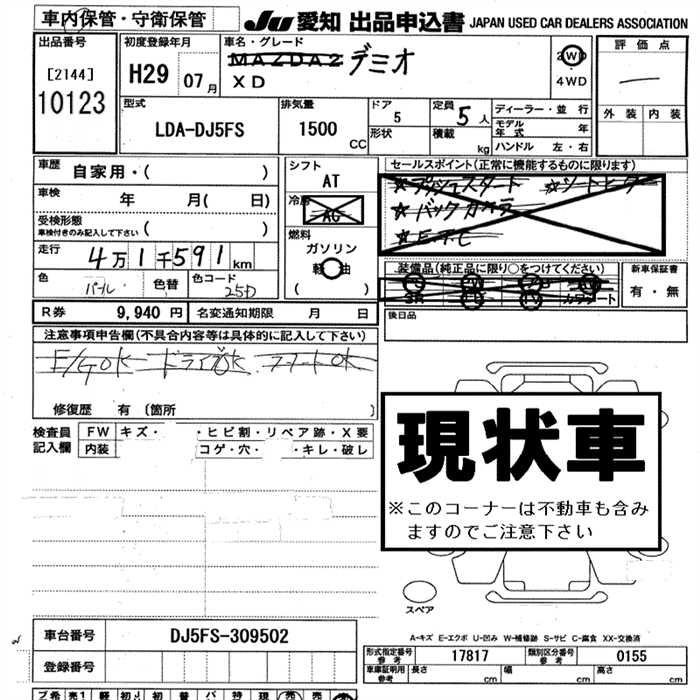 車内保管・守衛保管
JU 愛知 出品申込書 JAPAN USED CAR DEALERS ASSOCIATION
出品番号
[2144]
10123
初度登録年月
H29 07月
車名・グレード
MAZDA2 デミオ
XD
2WD
4WD
評価点
外装 内装
型式
LDA-DJ5FS
排気量
1500 CC
ドア
5
形状
定員
5人
積載
kg
ディーラー・並行
モデル年式 年
ハンドル 左・右
車歴
自家用・( )
車検
年 月( 日)
受検形態
車検付きのみ記入して下さい ( )
走行
4万1千591km
色
パール
色替
色コード
25D
シフト
AT
冷房
AC
燃料
ガソリン
軽油
( )
セールスポイント(正常に機能するものに限ります)
☆プッシュスタート ☆シートヒーター
☆バックカメラ
☆E.T.C
装備品(純正品に限り○をつけてください)
新車保証書
有・無
R券 9,940円
名変通知期限 月 日
後日品
注意事項申告欄(不具合内容等は具体的に記入して下さい)
E/G OK ドライブOK
修復歴 有〔箇所 〕
検査員記入欄
FW キズ・ ・ヒビ割・リペア跡・X要
内装 コゲ・穴・ ・キレ・破レ
現状車
※このコーナーは不動車も含み
ますのでご注意下さい
スペア
A-キズ E-エクボ U-凹み W-補修跡 S-サビ C-腐食 XX-交換済
車台番号 DJ5FS-309502
登録番号
形式指定番号 参考 17817
類別区分番号 参考 0155
車庫証明用 参考 長さ cm 幅 cm 高さ cm